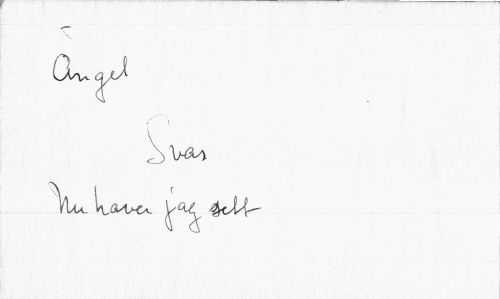 Ängel
Svar
Nu haver jag sett